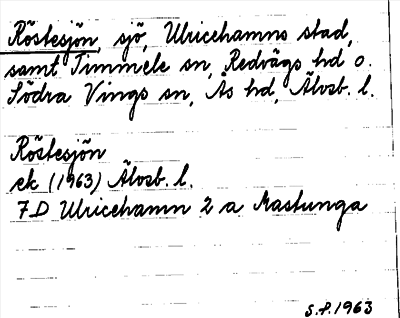 Röstesjön, sjö, Ulricehamns stad,
samt Timmele sn, Redvägs hd o.
Södra Vings sn, Ås hd, Älvsb. l.
Röstesjön
ek (1963) Älvsb. l.
7D Ulricehamn 2 a Mastunga
S.P. 1963